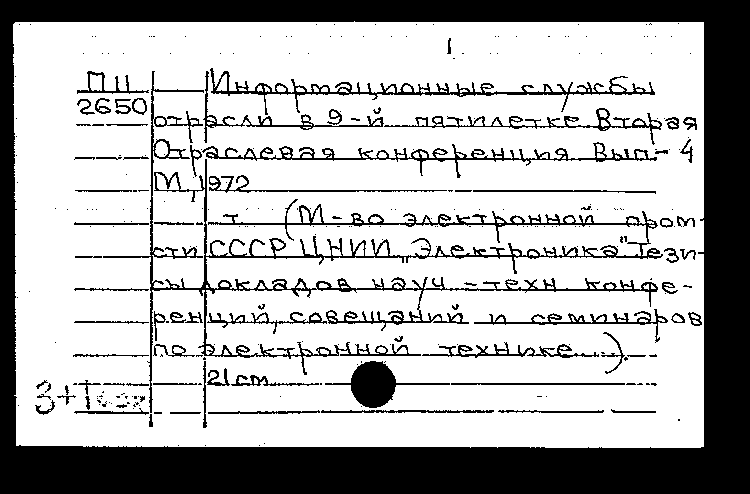 1
ПП Информационные службы
2650 отрасли в 9-й пятилетке Вторая
Отраслевая конференция Вып.- 4
М, 1972
т. (М-во электронной пром-
сти СССР ЦНИИ „Электроника" Тези-
сы докладов науч-техн конфе-
ренций, совещаний и семинаров
по электронной технике...).
21 cm
3+1